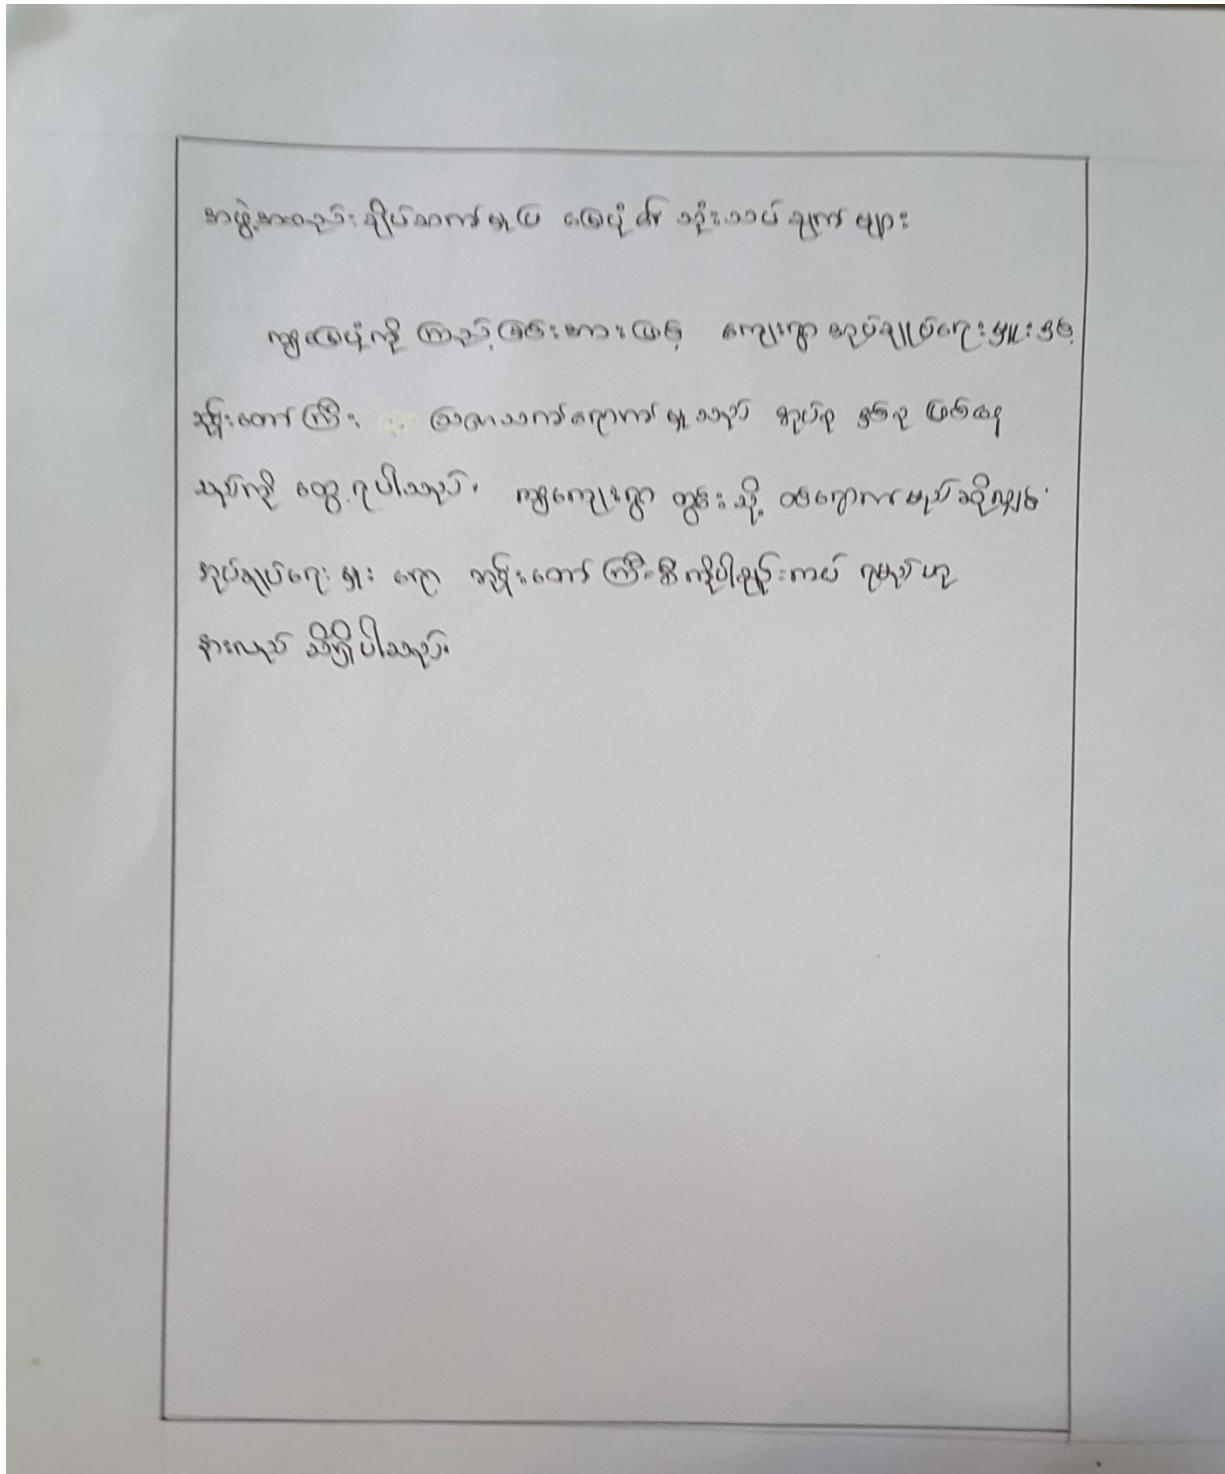 အဖွဲ့အစည်းချိတ်ဆက်မှုပြ မြေပုံ၏ သုံးသပ်ချက်များ
ဤမြေပုံကို ကြည့်ခြင်းအားဖြင့် ကျေးရွာအုပ်ချုပ်ရေးမှူးနှင့်
ဘုန်းတော်ကြီး သြဇာသက်ရောက်မှုသည် အုပ်စု နှစ်စု ဖြစ်နေ
သည်ကို တွေ့ရပါသည်။ ဤကျေးရွာ တွင်းသို့ ဝင်ရောက်မည်ဆိုလျှင်
အုပ်ချုပ်ရေးမှူး ရော ဘုန်းတော်ကြီးစီကိုပါချဉ်းကပ် ရမည်ဟု
နားလည် သိရှိပါသည်။